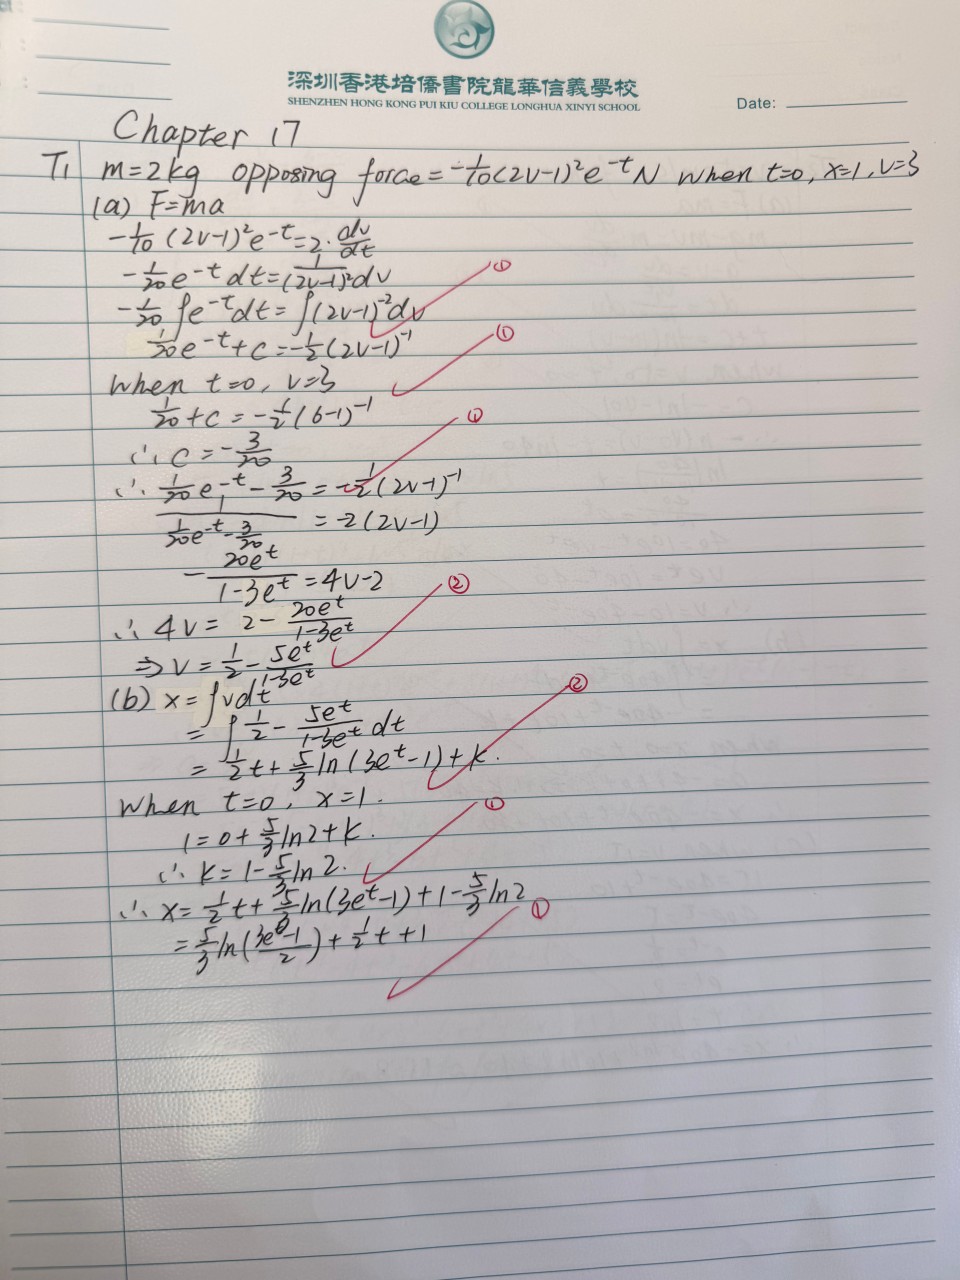 深圳香港培僑書院龍華信義學校
SHENZHEN HONG KONG PUI KIU COLLEGE LONGHUA XINYI SCHOOL
Date:
Chapter 17
T1 m=2kg opposing force = -1/10(2v-1)²e^-t N when t=0, x=1, v=3
(a) F=ma
-1/10 (2v-1)²e^-t = 2·dv/dt
-1/20 e^-t dt = 1/(2v-1)² dv
①
-1/20 ∫e^-t dt = ∫(2v-1)^-2 dv
1/20 e^-t + C = -1/2(2v-1)^-1
①
when t=0, v=3
1/20 + C = -1/2(6-1)^-1
①
∴ C = -3/20
∴ 1/20 e^-t - 3/20 = -1/2(2v-1)^-1
1/(1/20 e^-t - 3/20) = -2(2v-1)
-20e^t/(1-3e^t) = 4v-2
②
∴ 4v = 2 - 20e^t/(1-3e^t)
⇒ v = 1/2 - 5e^t/(1-3e^t)
(b) x = ∫vdt
②
= ∫ 1/2 - 5e^t/(1-3e^t) dt
= 1/2 t + 5/3 ln(3e^t-1) + k.
when t=0, x=1.
①
1 = 0 + 5/3 ln2 + k.
∴ k = 1 - 5/3 ln 2.
∴ x = 1/2 t + 5/3 ln(3e^t-1) + 1 - 5/3 ln2
①
= 5/3 ln((3e^t-1)/2) + 1/2 t + 1